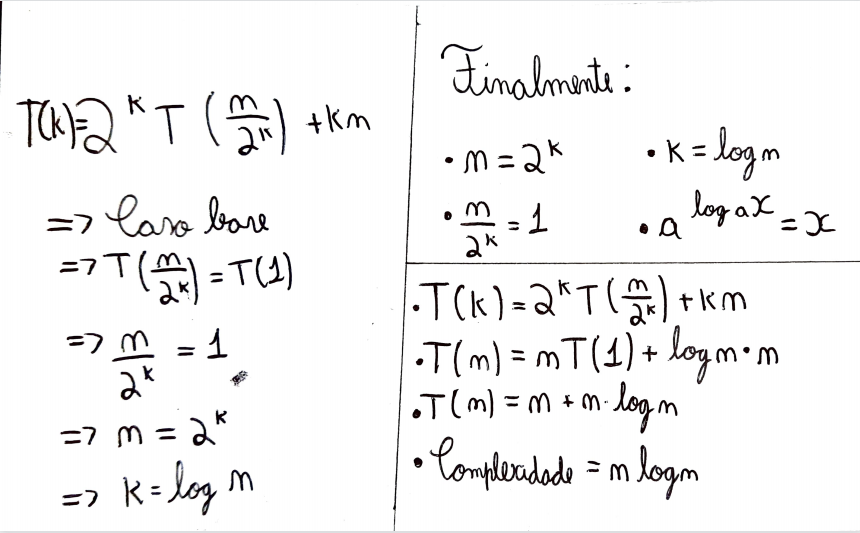 T(k)=2^k T(n/2^k) + kn
=> Caso base
=> T(n/2^k) = T(1)
=> n/2^k = 1
=> n = 2^k
=> k = log n
Finalmente:
• n = 2^k • k = log n
• n/2^k = 1 • a^log a x = x
• T(k) = 2^k T(n/2^k) + kn
• T(n) = nT(1) + log n • n
• T(n) = n + n · log n
• Complexidade = n log n